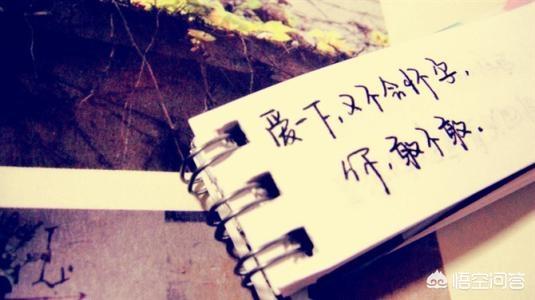 爱一下,又不会怀孕,
你,敢不敢.
悟空问答